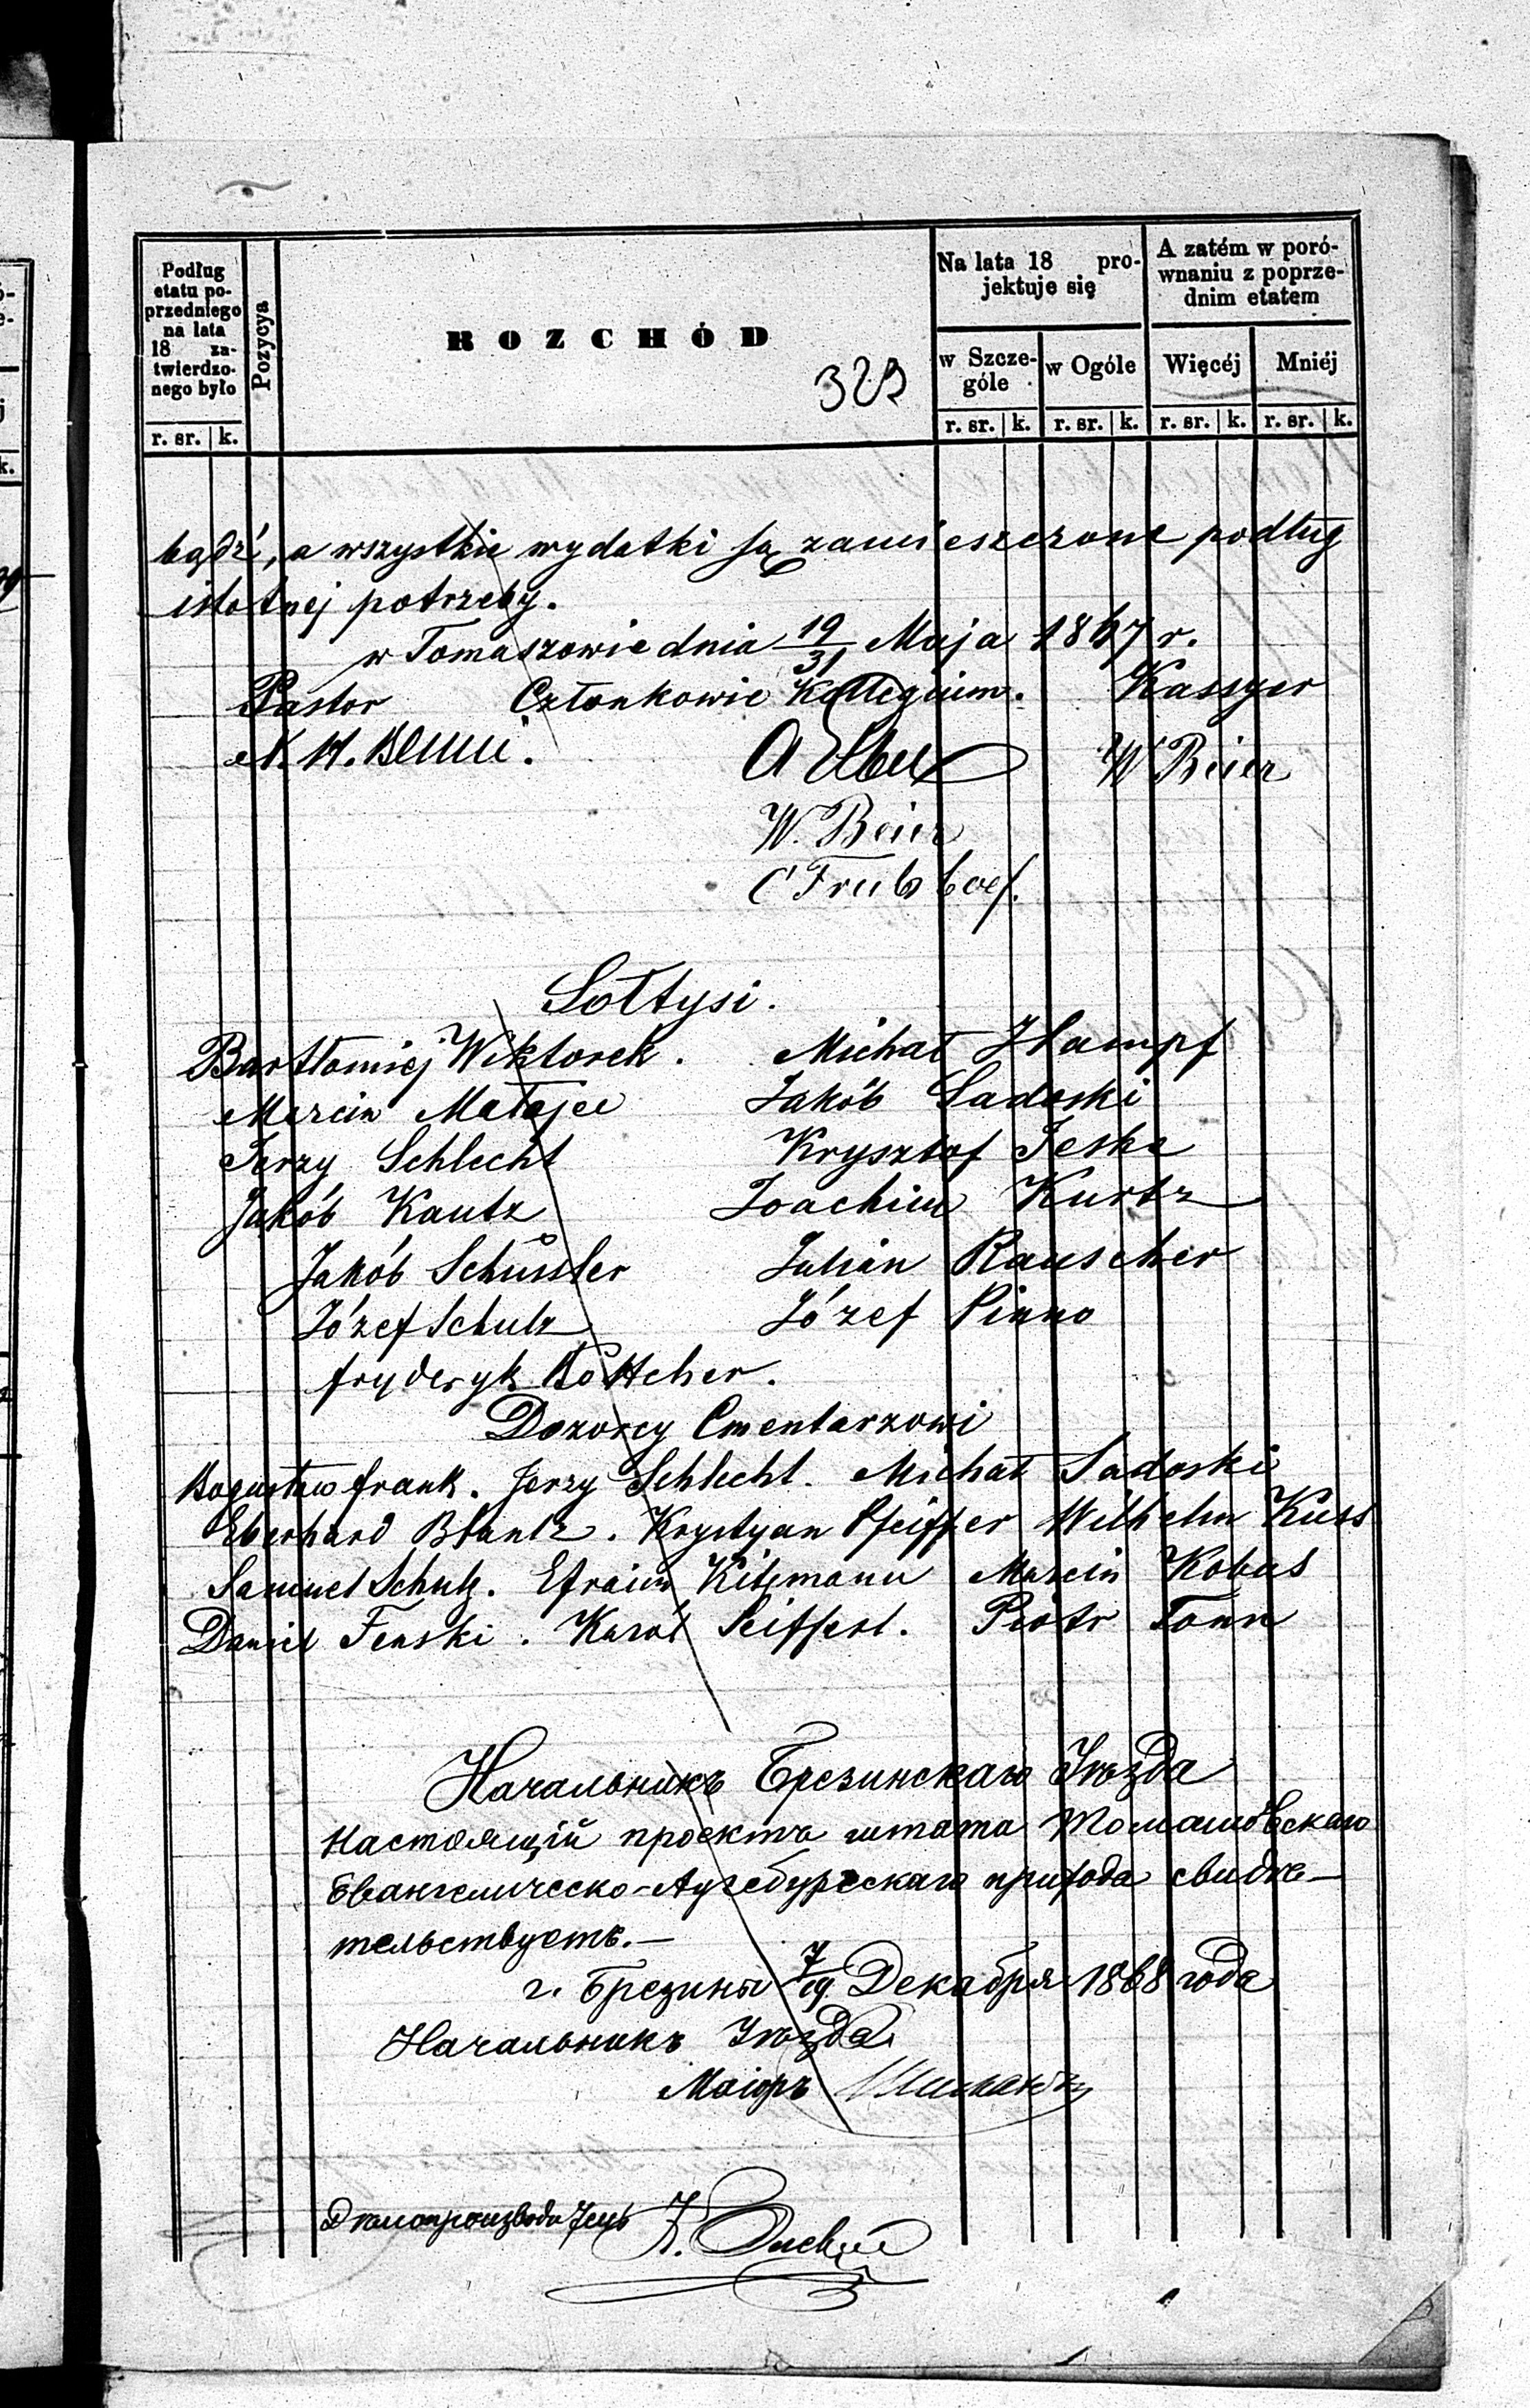 Podług
etatu po-
przedniego
na lata
18 za-
twierdzo-
nego było
Pozycya
ROZCHÓD
329
Na lata 18 pro-
jektuje się
A zatém w poró-
wnaniu z poprze-
dnim etatem
w Szcze-
góle
w Ogóle
Więcéj
Mniéj
r. sr. k.
r. sr. k. r. sr. k. r. sr. k. r. sr. k.
bądź, a wszystkie wydatki są zamieszczone podług
istotnej potrzeby.
w Tomaszowie dnia 19/31 Maja 1867 r.
Pastor Członkowie Kollegium. Kassyer
W Beier
W. Beier
Sołtysi.
Bartłomiej Wiktorek. Michał Hampf
Marcin Matajec Jakób Sadoski
Jerzy Schlecht Krysztof Jeske
Jakób Kautz Joachim Kurtz
Jakób Schüssler Julian Rauscher
Józef Schulz Józef Pinno
fryderyk Böttcher.
Dozorcy Cmentarzowi
Bogusław frank. Jerzy Schlecht. Michał Sadoski
Eberhard Blantz. Krystyan Pfeiffer Wilhelm Kuss
Samuel Schulz. Efraim Kitzmann Marcin Kobus
Daniel Fenski. Karól Seiffert. Piotr Tonn
Начальникъ Брезинскаго Уѣзда
настоящій проектъ штата Томашовскаго
Евангелическо-Аугсбургскаго прихода свидѣ-
тельствуетъ.—
г. Брезины 7/19 Декабря 1868 года
Начальникъ Уѣзда
Маіоръ
Дѣлопроизводитель